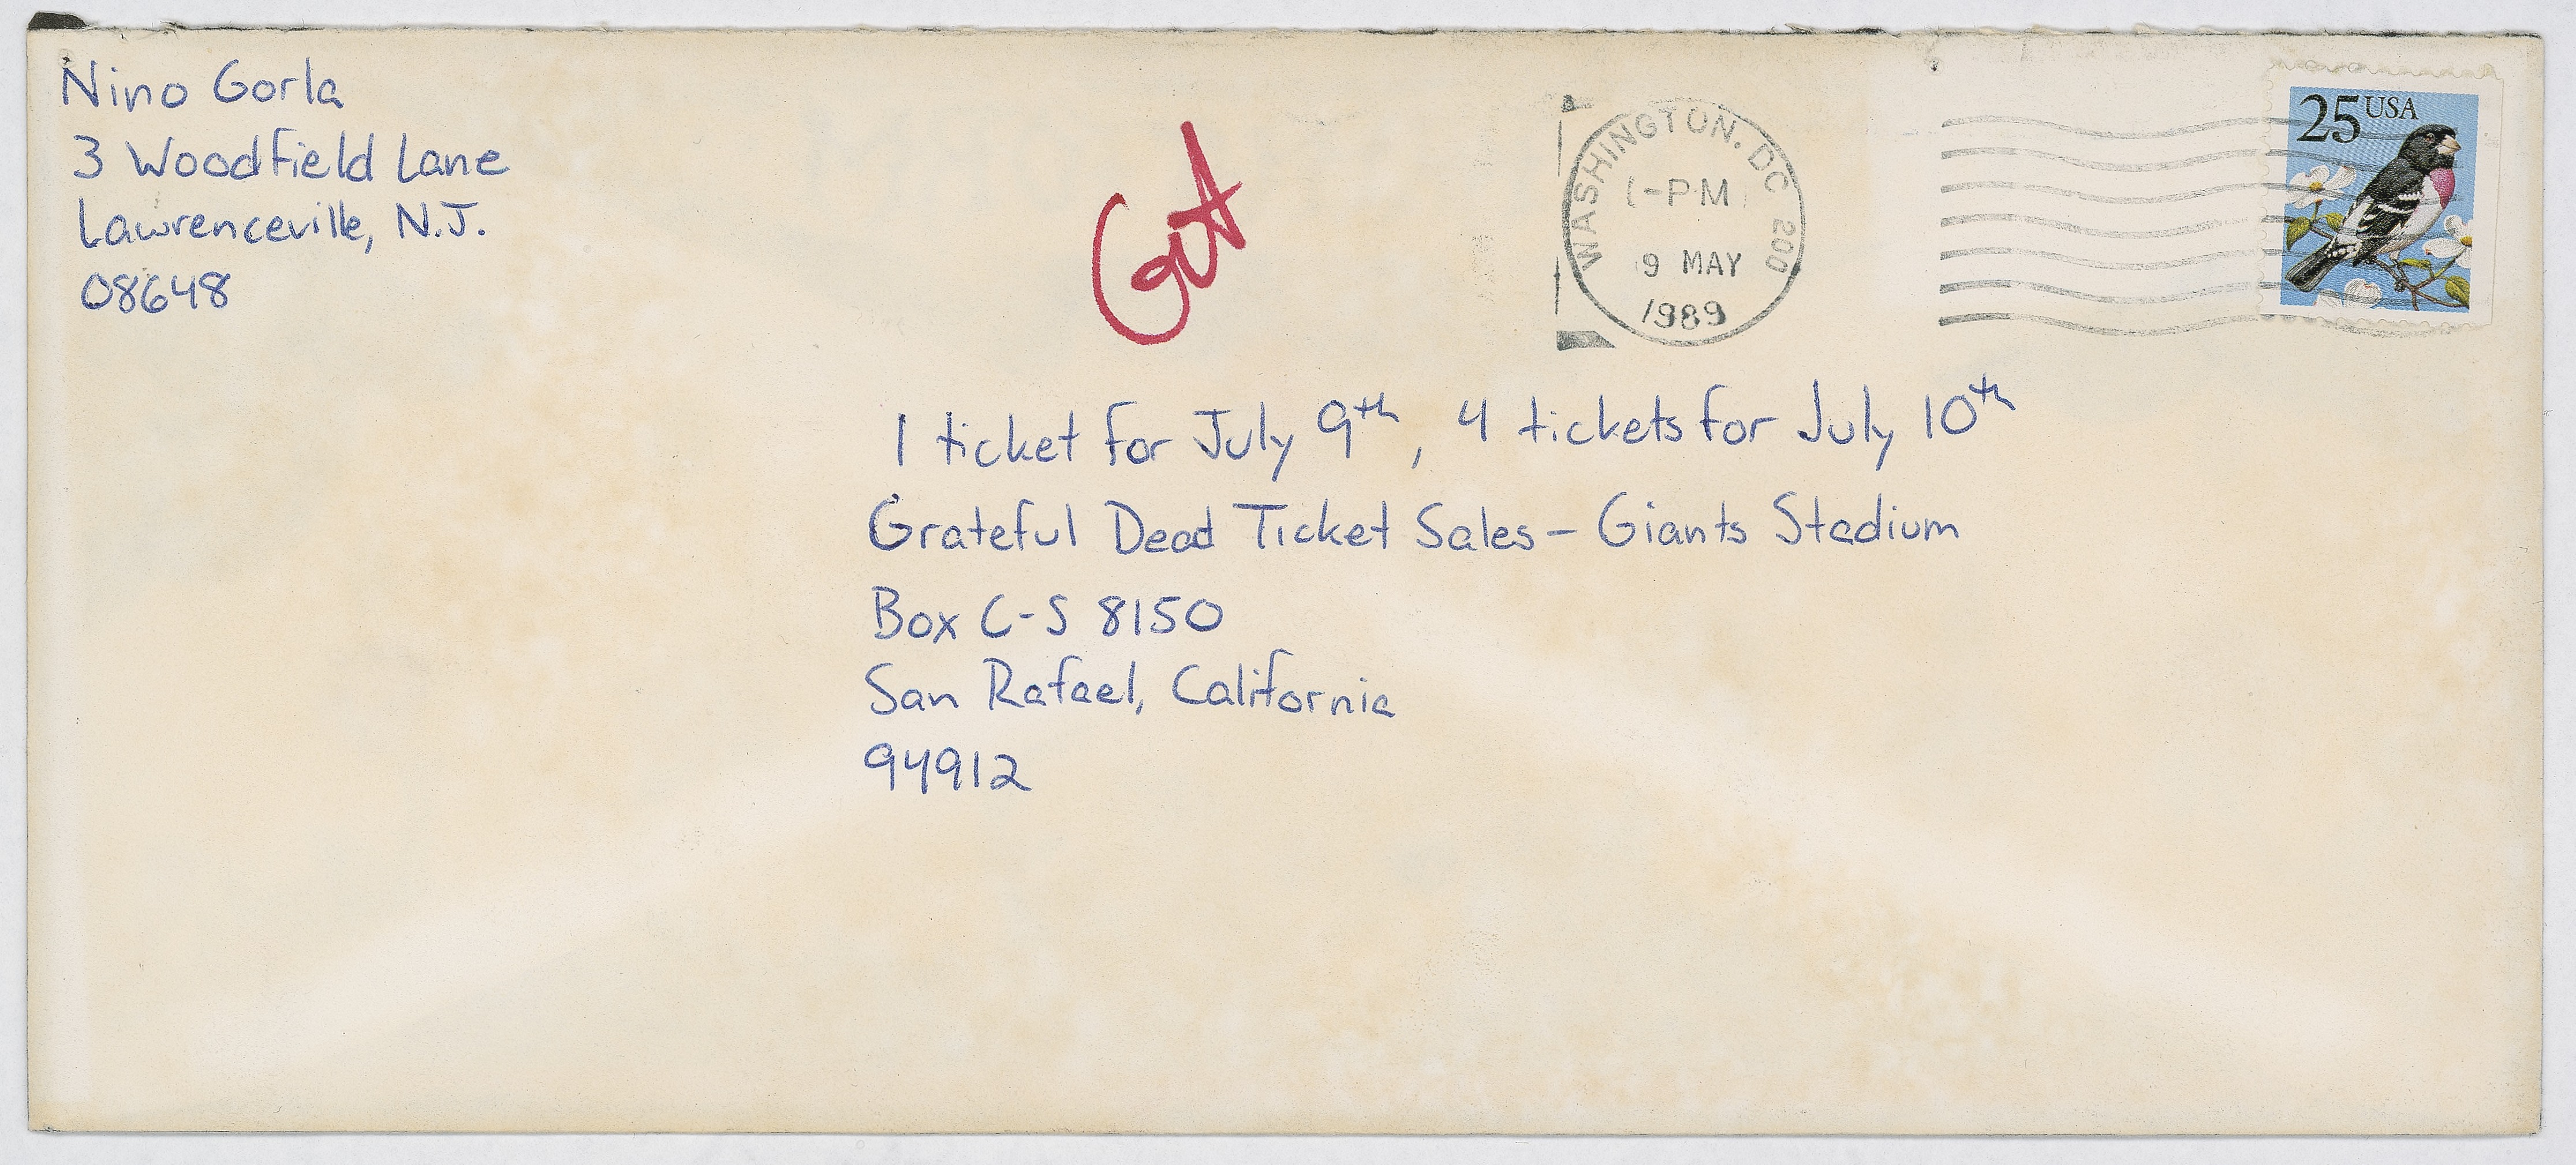 Nino Gorla
3 Woodfield Lane
Lawrenceville, N.J.
08648
WASHINGTON. DC 200
1-PM
9 MAY
1989
25 USA
1 ticket for July 9th, 4 tickets for July 10th
Grateful Dead Ticket Sales – Giants Stadium
Box C-S 8150
San Rafael, California
94912